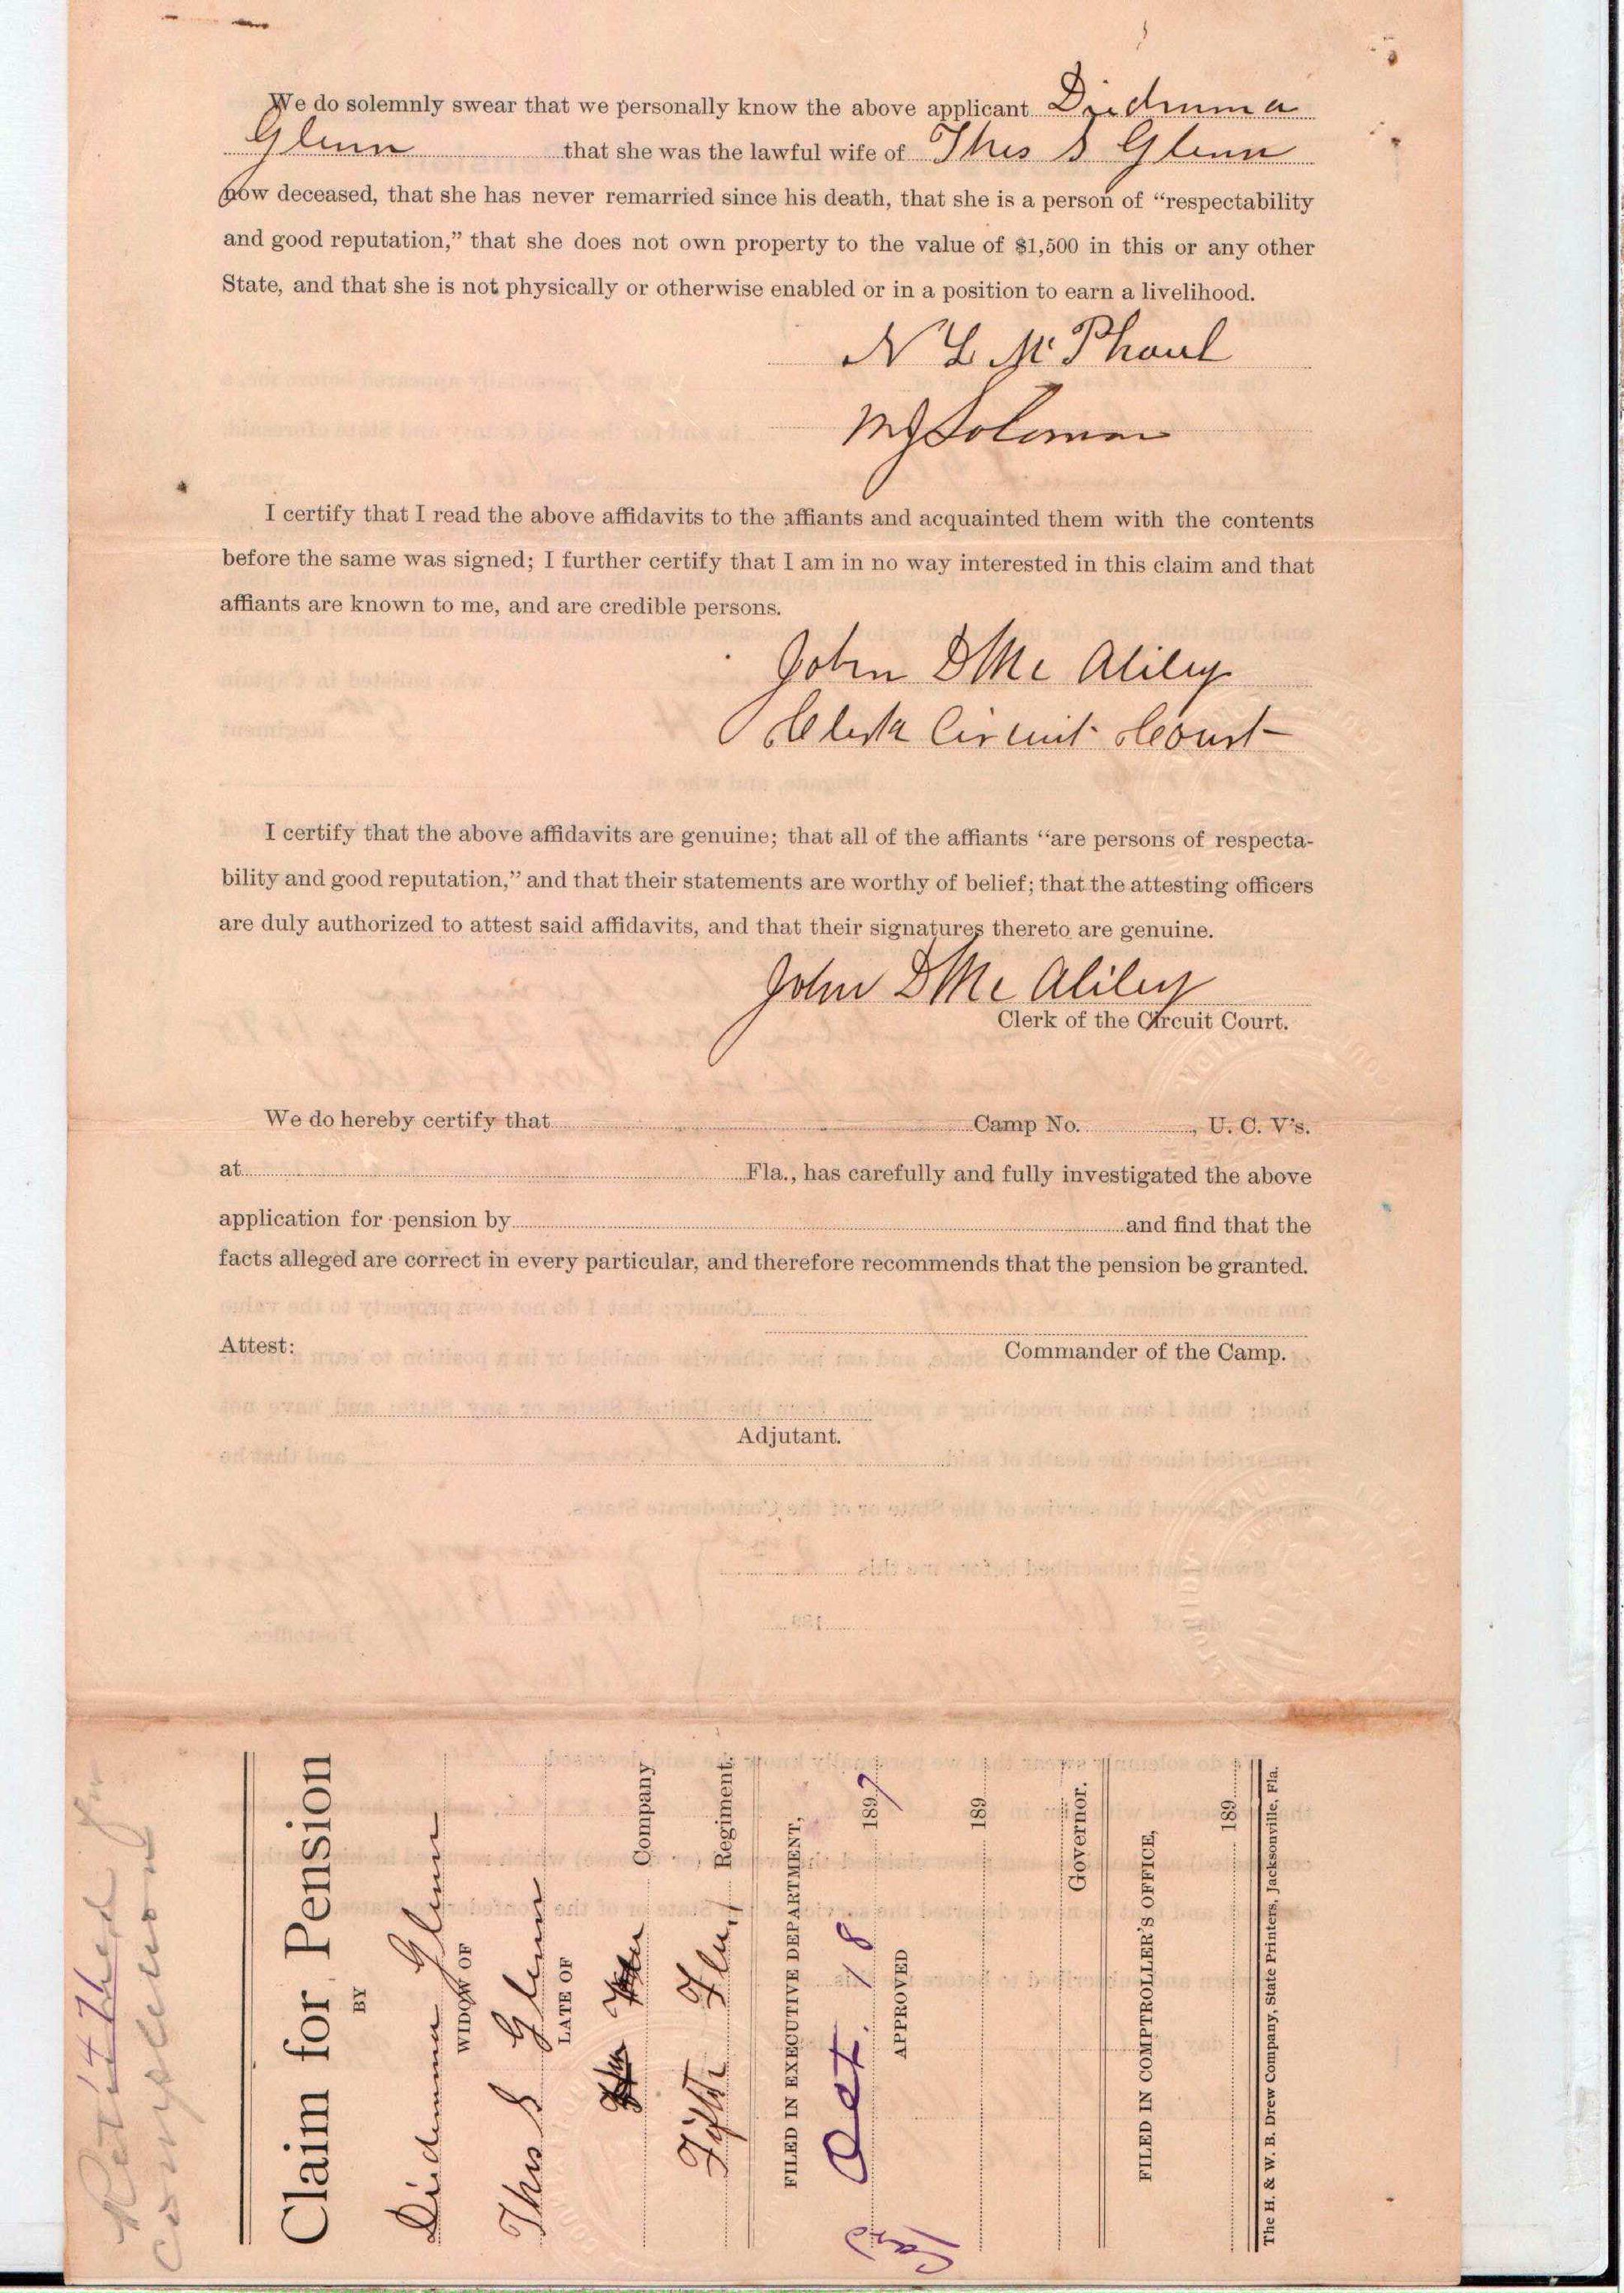 We do solemnly swear that we personally know the above applicant Diedrumma
Glenn that she was the lawful wife of Thos S Glenn
now deceased, that she has never remarried since his death, that she is a person of “respectability
and good reputation,” that she does not own property to the value of $1,500 in this or any other
State, and that she is not physically or otherwise enabled or in a position to earn a livelihood.
N L McPhaul
M J Solomon
I certify that I read the above affidavits to the affiants and acquainted them with the contents
before the same was signed; I further certify that I am in no way interested in this claim and that
affiants are known to me, and are credible persons.
John D McAliley
Clerk Circuit Court
I certify that the above affidavits are genuine; that all of the affiants “are persons of respecta-
bility and good reputation,” and that their statements are worthy of belief; that the attesting officers
are duly authorized to attest said affidavits, and that their signatures thereto are genuine.
John D McAliley
Clerk of the Circuit Court.
We do hereby certify that Camp No. , U. C. V's.
at Fla., has carefully and fully investigated the above
application for pension by and find that the
facts alleged are correct in every particular, and therefore recommends that the pension be granted.
Attest:
Commander of the Camp.
Adjutant.
Ret'd for
completion
Claim for Pension
BY
Diedrumma Glenn
WIDOW OF
Thos S Glenn
LATE OF
Company
Fifth Fla, Regiment.
FILED IN EXECUTIVE DEPARTMENT,
Oct. 18 1897
APPROVED
189
Governor.
FILED IN COMPTROLLER'S OFFICE,
189
The H. & W. B. Drew Company, State Printers, Jacksonville, Fla.